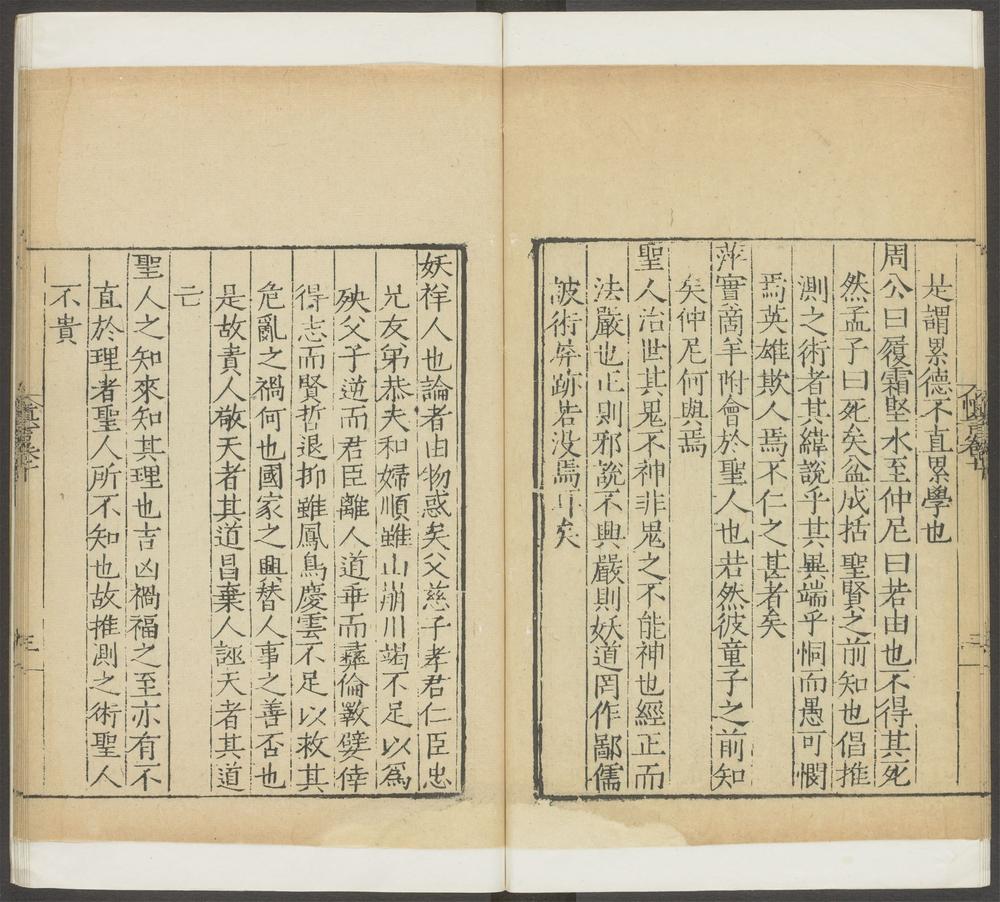 是謂累德不直累學也
周公曰履霜堅水至仲尼曰若由也不得其死
然孟子曰死矣盆成括聖賢之前知也倡推
測之術者其緯說乎其異端乎恫而愚可憫
焉英雄欺人焉不仁之甚者矣
萍實啇羊附會於聖人也若然彼童子之前知
矣仲尼何與焉
聖人治世其鬼不神非鬼之不能神也經正而
法嚴也正則邪說不興嚴則妖道罔作鄙儒
詖術屏跡若没焉耳矣
妖祥人也論者由物惑矣父慈子孝君仁臣忠
兄友弟恭夫和婦順雖山崩川竭不足以爲
殃父子逆而君臣離人道乖而彝倫斁嬖倖
得志而賢哲退抑雖鳳鳥慶雲不足以救其
危亂之禍何也國家之興替人事之善否也
是故責人敬天者其道昌棄人誣天者其道
亡
聖人之知來知其理也吉凶禍福之至亦有不
直於理者聖人所不知也故推測之術聖人
不貴